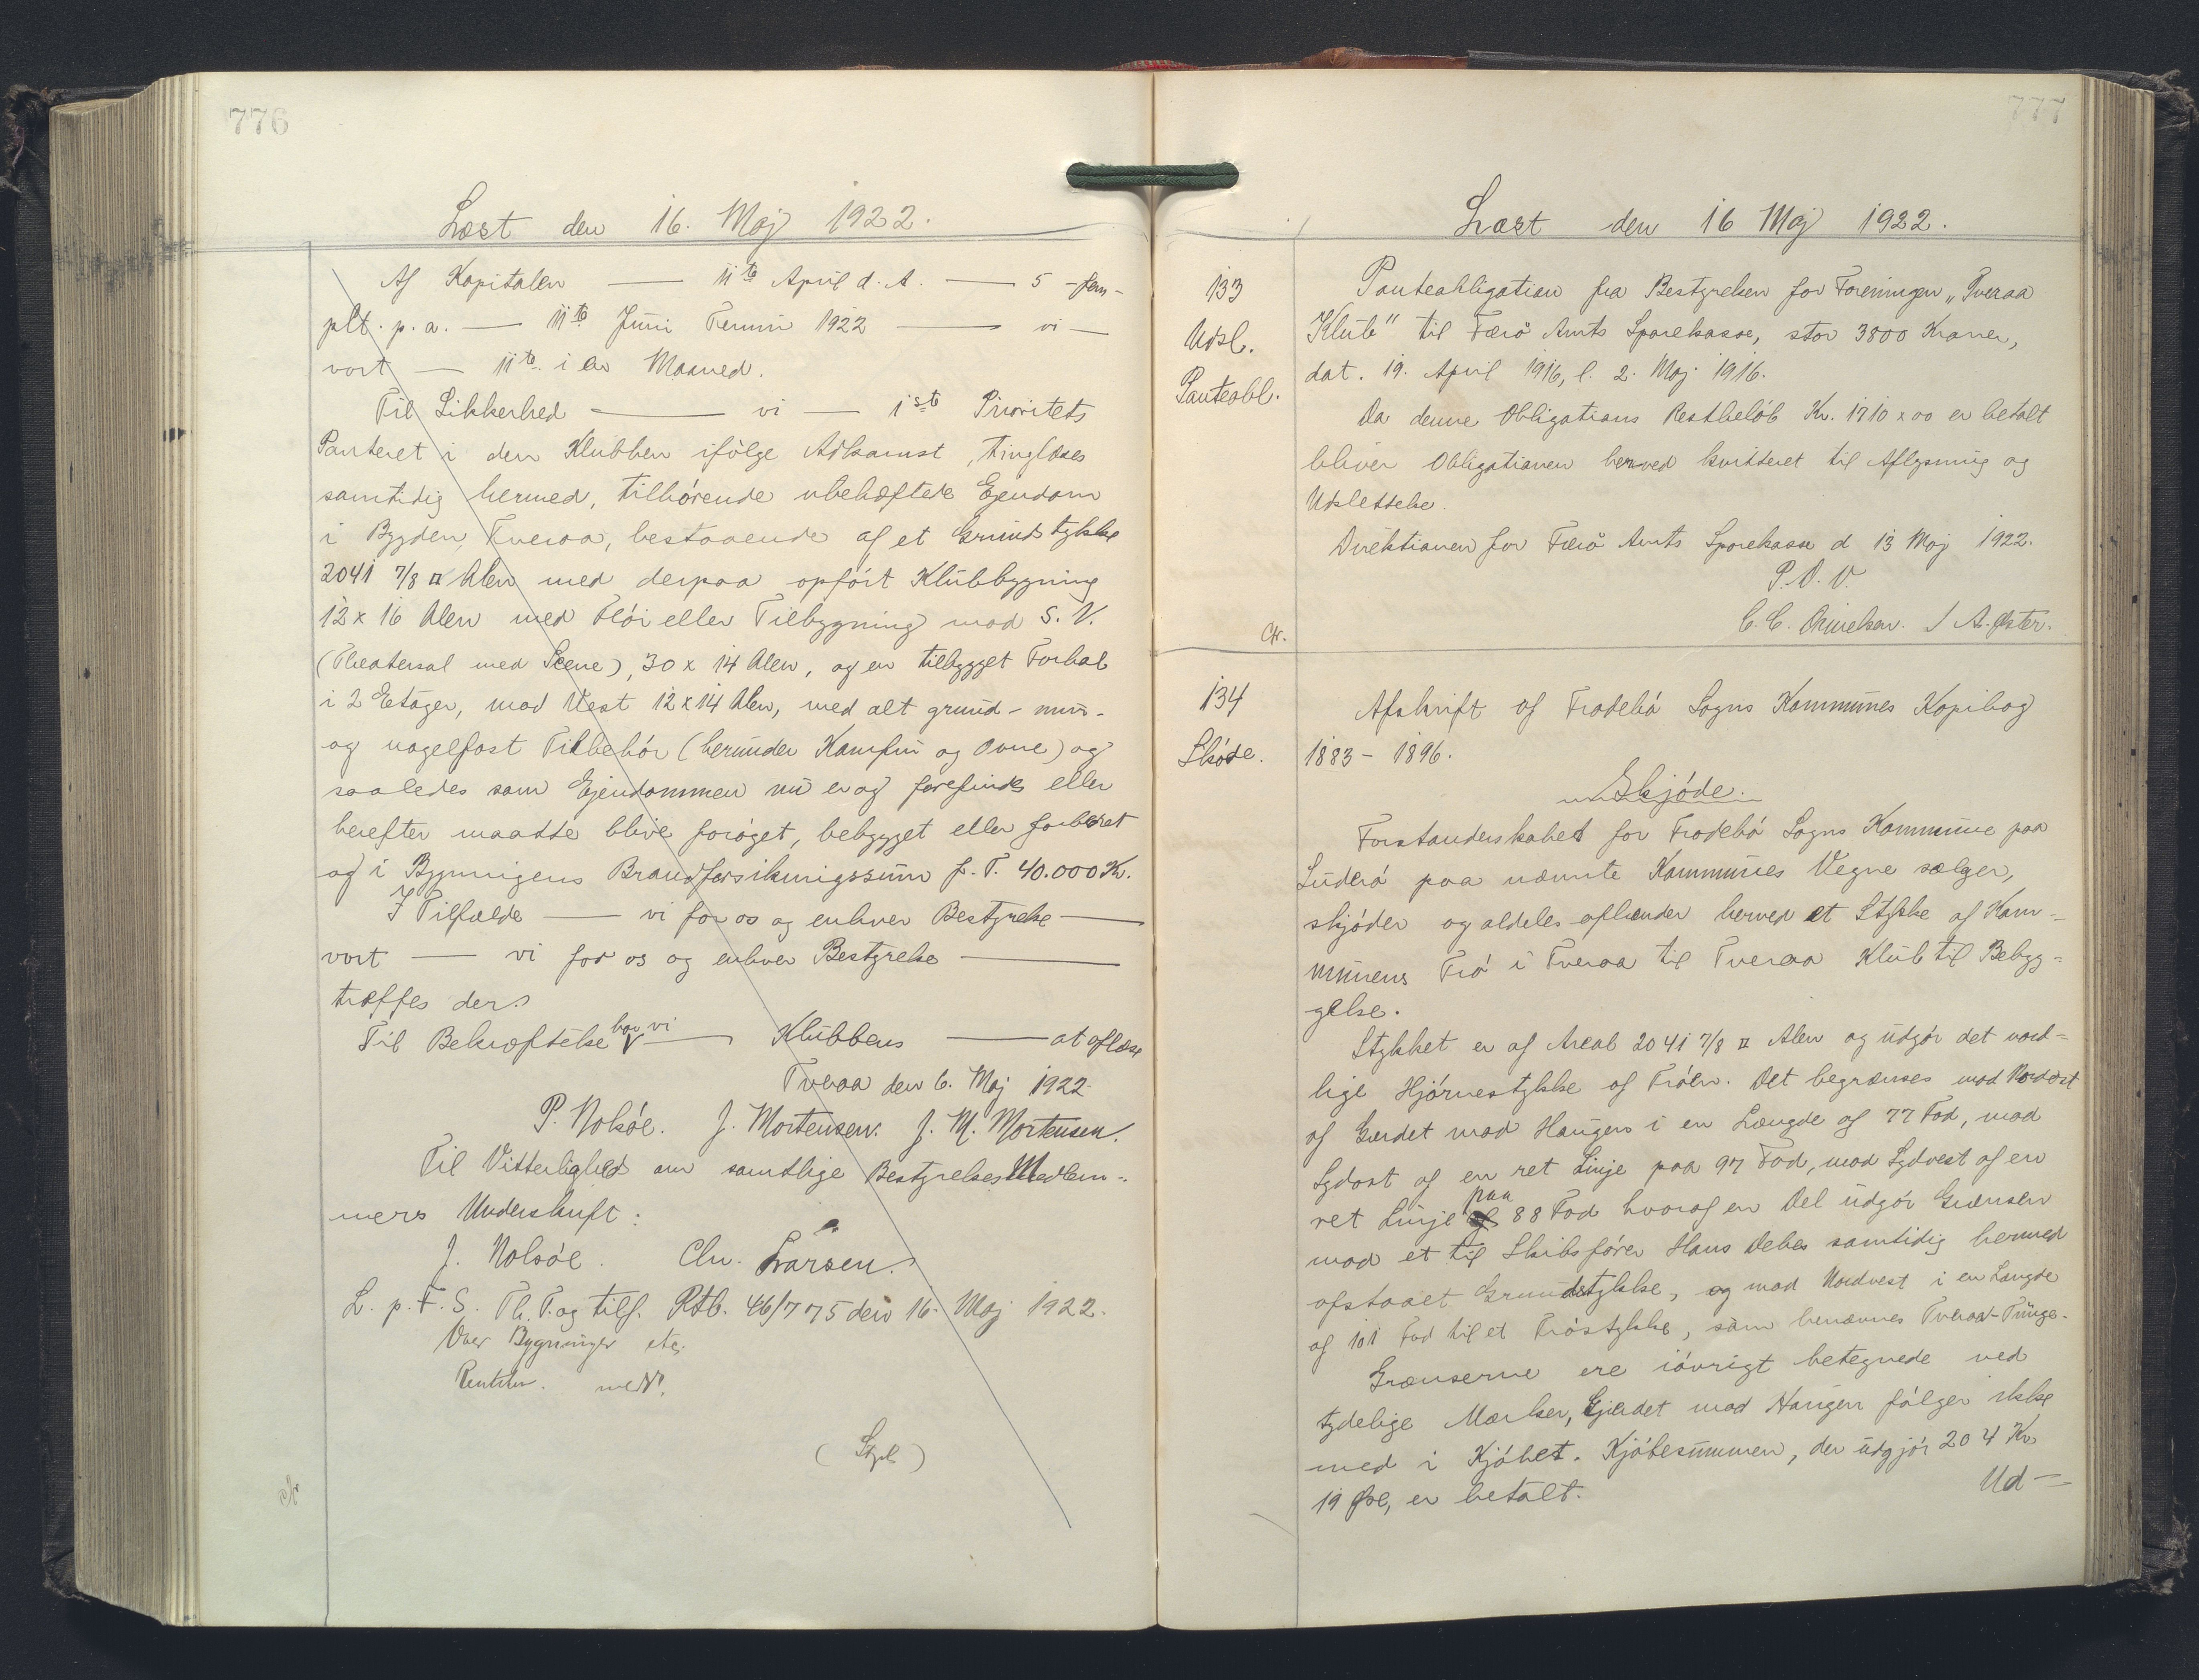 776
Læst den 16. Maj 1922.
Af Kapitalen — 11te April d. A. — 5 - fem -
pCt. p. a. — 11te Juni Termin 1922 — vi —
vort — 11te i en Maaned.
Til Sikkerhed — vi — 1ste Prioritets
Panteret i den Klubben ifølge Adkomst, tinglæses
samtidig hermed, tilhørende ubehæftede Ejendom
i Bygden Tveraa, bestaaende af et Grundstykke
2041 7/8 □ Alen med derpaa opført Klubbygning
12 x 16 Alen med Fløi eller Tilbygning mod S. V.
(Theatersal med Scene), 30 x 14 Alen, og en tilbygget Forhal
i 2 Etager, mod Vest 12 x 14 Alen, med alt grund- mur-
og nagelfast Tilbehør (herunder Komfur og Ovne) og
saaledes som Ejendommen nu er og forefindes eller
herefter maatte blive forøget, bebygget eller forbedret
og i Bygningens Brandforsikringssum f. T. 40.000 Kr.
I Tilfælde — vi for os og enhver Bestyrelse —
vort — vi for os og enhver Bestyrelse —
træffes der.
Til Bekræftelse har vi — Klubbens — at aflæse
Tveraa den 6. Maj 1922.
P. Nolsøe. J. Mortensen. J. M. Mortensen.
Til Vitterlighed om samtlige BestyrelsesMedlem-
mers Underskrift:
J. Nolsøe. Chr. Larsen.
L. p. F. S. Th. T. og tilf. Rtb. 46/775 den 16. Maj 1922.
Over Bygninger etc.
(Stpl)
777
Læst den 16 Maj 1922.
133
Udsl.
Panteobl.
Panteobligation fra Bestyrelsen for Foreningen „Tveraa
Klub" til Færø Amts Sparekasse, stor 3800 Kroner,
dat. 19. April 1916, l. 2. Maj 1916.
Da denne Obligations Restbeløb Kr. 1710 x 00 er betalt
bliver Obligationen herved kvitteret til Aflysning og
Udslettelse.
Direktionen for Færø Amts Sparekasse d 13 Maj 1922.
P. D. V.
C. C. Danielsen. / A. Øster.
134
Skøde.
Afskrift af Frodebø Sogns Kommunes Kopibog
1883 - 1896.
Skjøde.
Forstanderskabet for Frodebø Sogns Kommune paa
Suderø paa nævnte Kommunes Vegne sælger,
skjøder og aldeles afhænder herved et Stykke af Kom-
munens Trø i Tveraa til Tveraa Klub til Bebyg-
gelse.
Stykket er af Areal 2041 7/8 □ Alen og udgør det nord-
lige Hjørnestykke af Trøen. Det begrænses mod Nordøst
af Gærdet mod Haugen i en Længde af 77 Fod, mod
Sydost af en ret Linje paa 97 Fod, mod Sydvest af en
ret Linje paa 88 Fod hvoraf en Del udgør Grænsen
mod et til Skibsfører Hans Debes samtidig hermed
afstaaet Grundstykke, og mod Nordvest i en Længde
af 101 Fod til et Trøstykke, som benævnes Tveraa-Tunge.
Grænserne ere iøvrigt betegnede ved
tydelige Mærker, Gjærdet mod Haugen følger ikke
med i Kjøbet. Kjøbesummen, der udgjør 204 Kr.
19 Øre, er betalt.
Ud-